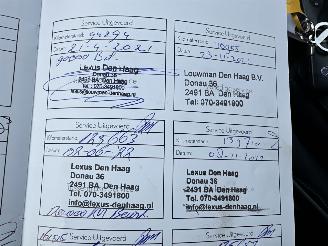 Service Uitgevoerd
Kilometerstand: 94894
Datum: 21-4-2021
90000 Brt
Lexus Den Haag
Donau 36
2491 BA Den Haag
Tel.: 070-3491800
Service Uitgevoerd
Kilometerstand:
Datum:
Louwman Den Haag B.V.
Donau 36
2491 BA Den Haag
Tel: 070-3491800
Service Uitgevoerd
Kilometerstand: 123663
Datum: 02-06-'22
Lexus Den Haag
Donau 36
2491 BA Den Haag
Tel. 070-3491800
info@lexus-denhaag.nl
120.000 KM Beurt
Service Uitgevoerd
Kilometerstand:
Datum:
Lexus Den Haag
Donau 36
2491 BA Den Haag
Tel. 070-3491800
info@lexus-denhaag.nl
Service Uitgevoerd
Service Uitgevoerd